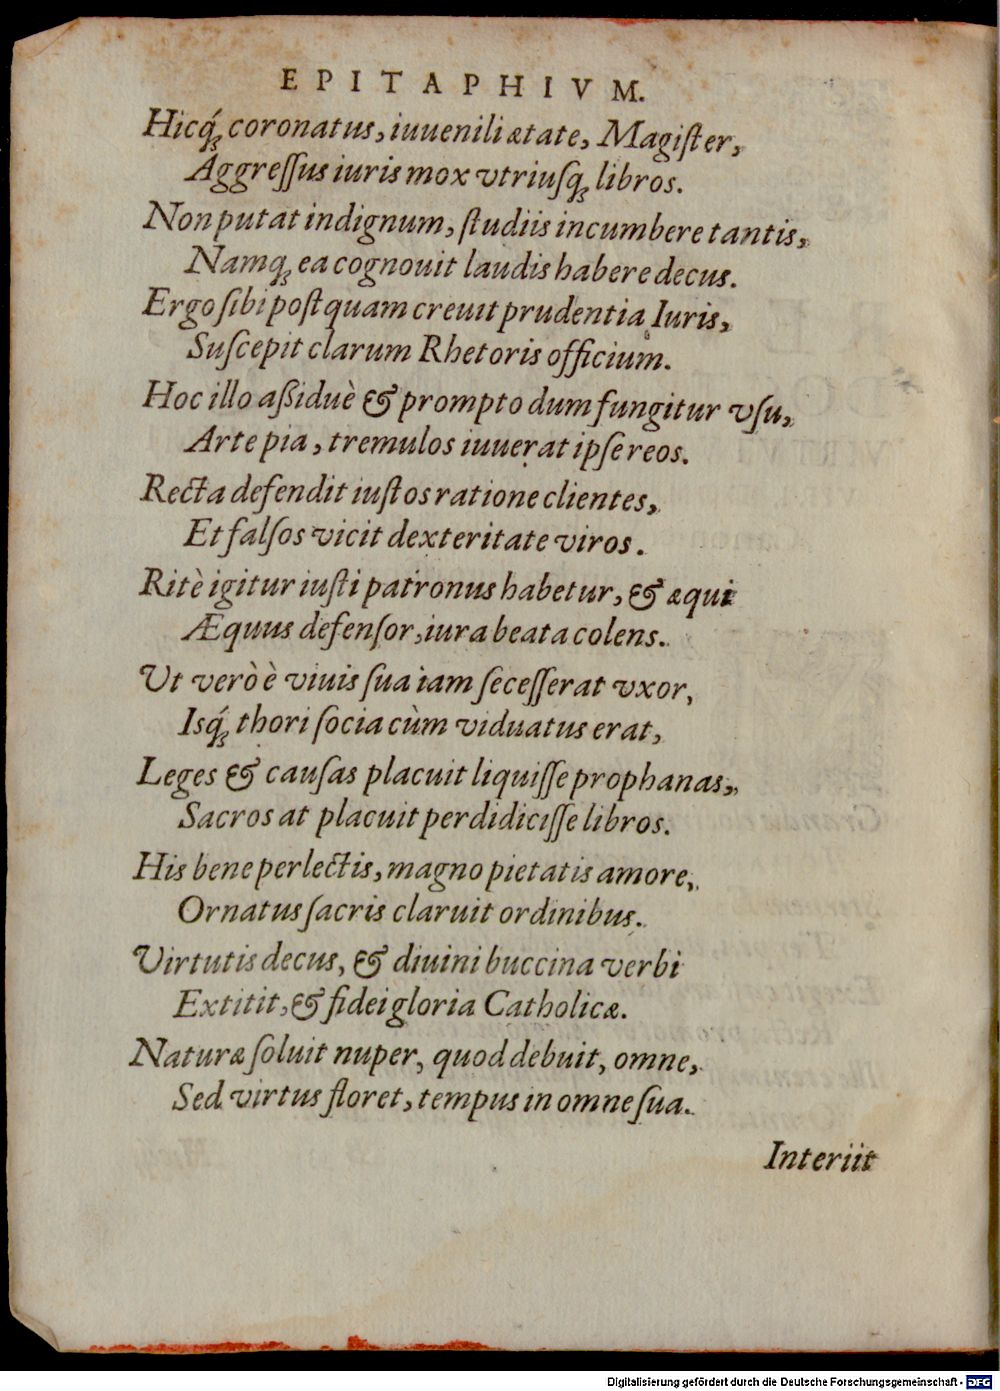 EPITAPHIVM.
Hicq́ꝫ coronatus, iuuenili ætate, Magiſter,
Aggreſſus iuris mox vtriuſqꝫ libros.
Non putat indignum, ſtudiis incumbere tantis,
Namqꝫ ea cognouit laudis habere decus.
Ergo ſibi poſtquam creuit prudentia Iuris,
Suſcepit clarum Rhetoris officium.
Hoc illo aßiduè & prompto dum fungitur vſu,
Arte pia, tremulos iuuerat ipſe reos.
Recta defendit iuſtos ratione clientes,
Et falſos vicit dexteritate viros.
Ritè igitur iuſti patronus habetur, & æqui
Æquus defenſor, iura beata colens.
Ut verò è viuis ſua iam ſeceſſerat vxor,
Isq́ꝫ thori ſocia cùm viduatus erat,
Leges & cauſas placuit liquiſſe prophanas,
Sacros at placuit perdidiciſſe libros.
His bene perlectis, magno pietatis amore,
Ornatus ſacris claruit ordinibus.
Virtutis decus, & diuini buccina verbi
Extitit, & fidei gloria Catholicæ.
Naturæ ſoluit nuper, quod debuit, omne,
Sed virtus floret, tempus in omne ſua.
Interiit
Digitalisierung gefördert durch die Deutsche Forschungsgemeinschaft - DFG